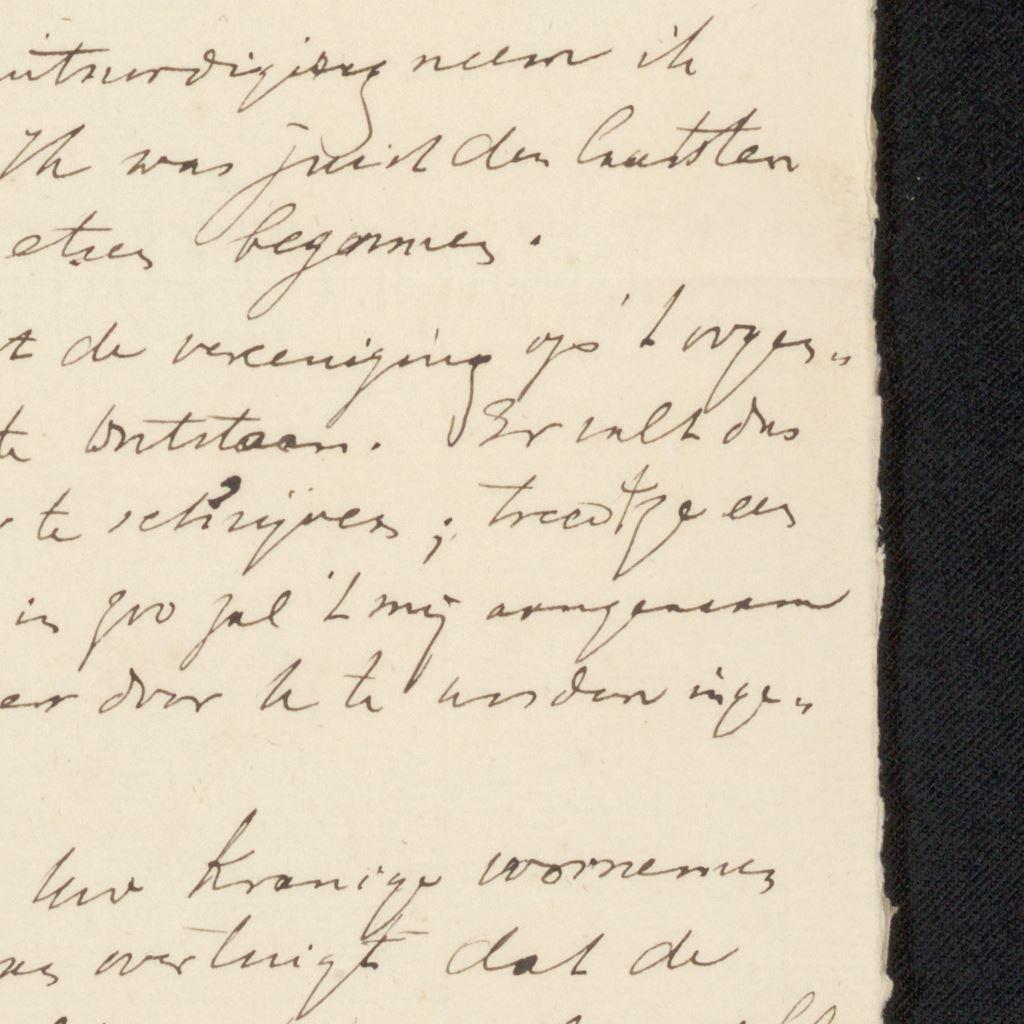 uitnoodiging neem ik
Ik was juist den laatsten
etsen begonnen.
de vereeniging op 't oogen„
te ontstaan. Er valt dus
te schrijven; treedt ze een
in zoo zal 't mij aangenaam
door U te worden inge„
Uw Kranige voornemen
overtuigt dat de